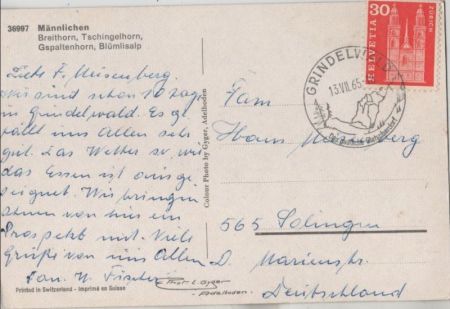 36997 Männlichen
Breithorn, Tschingelhorn,
Gspaltenhorn, Blümlisalp
Liebe F. Meisenberg.
Wir sind schon 10 Tage
in Grindelwald. Es ge
fällt uns Allen sehr
gut. Das Wetter so, wie
das Essen ist ausge
zeichnet. Wir bringen
Ihnen von hier ein
Prospekt mit. Viele
Grüße von uns Allen
Fam. W. Fischer
Printed in Switzerland - Imprimé en Suisse
Colour Photo by Gyger, Adelboden
Phot. E. Gyger
Adelboden
HELVETIA
30
ZÜRICH
GRINDELWALD
13.VII.65
Fam
Hans
565 Solingen
D. Marienstr.
Deutschland